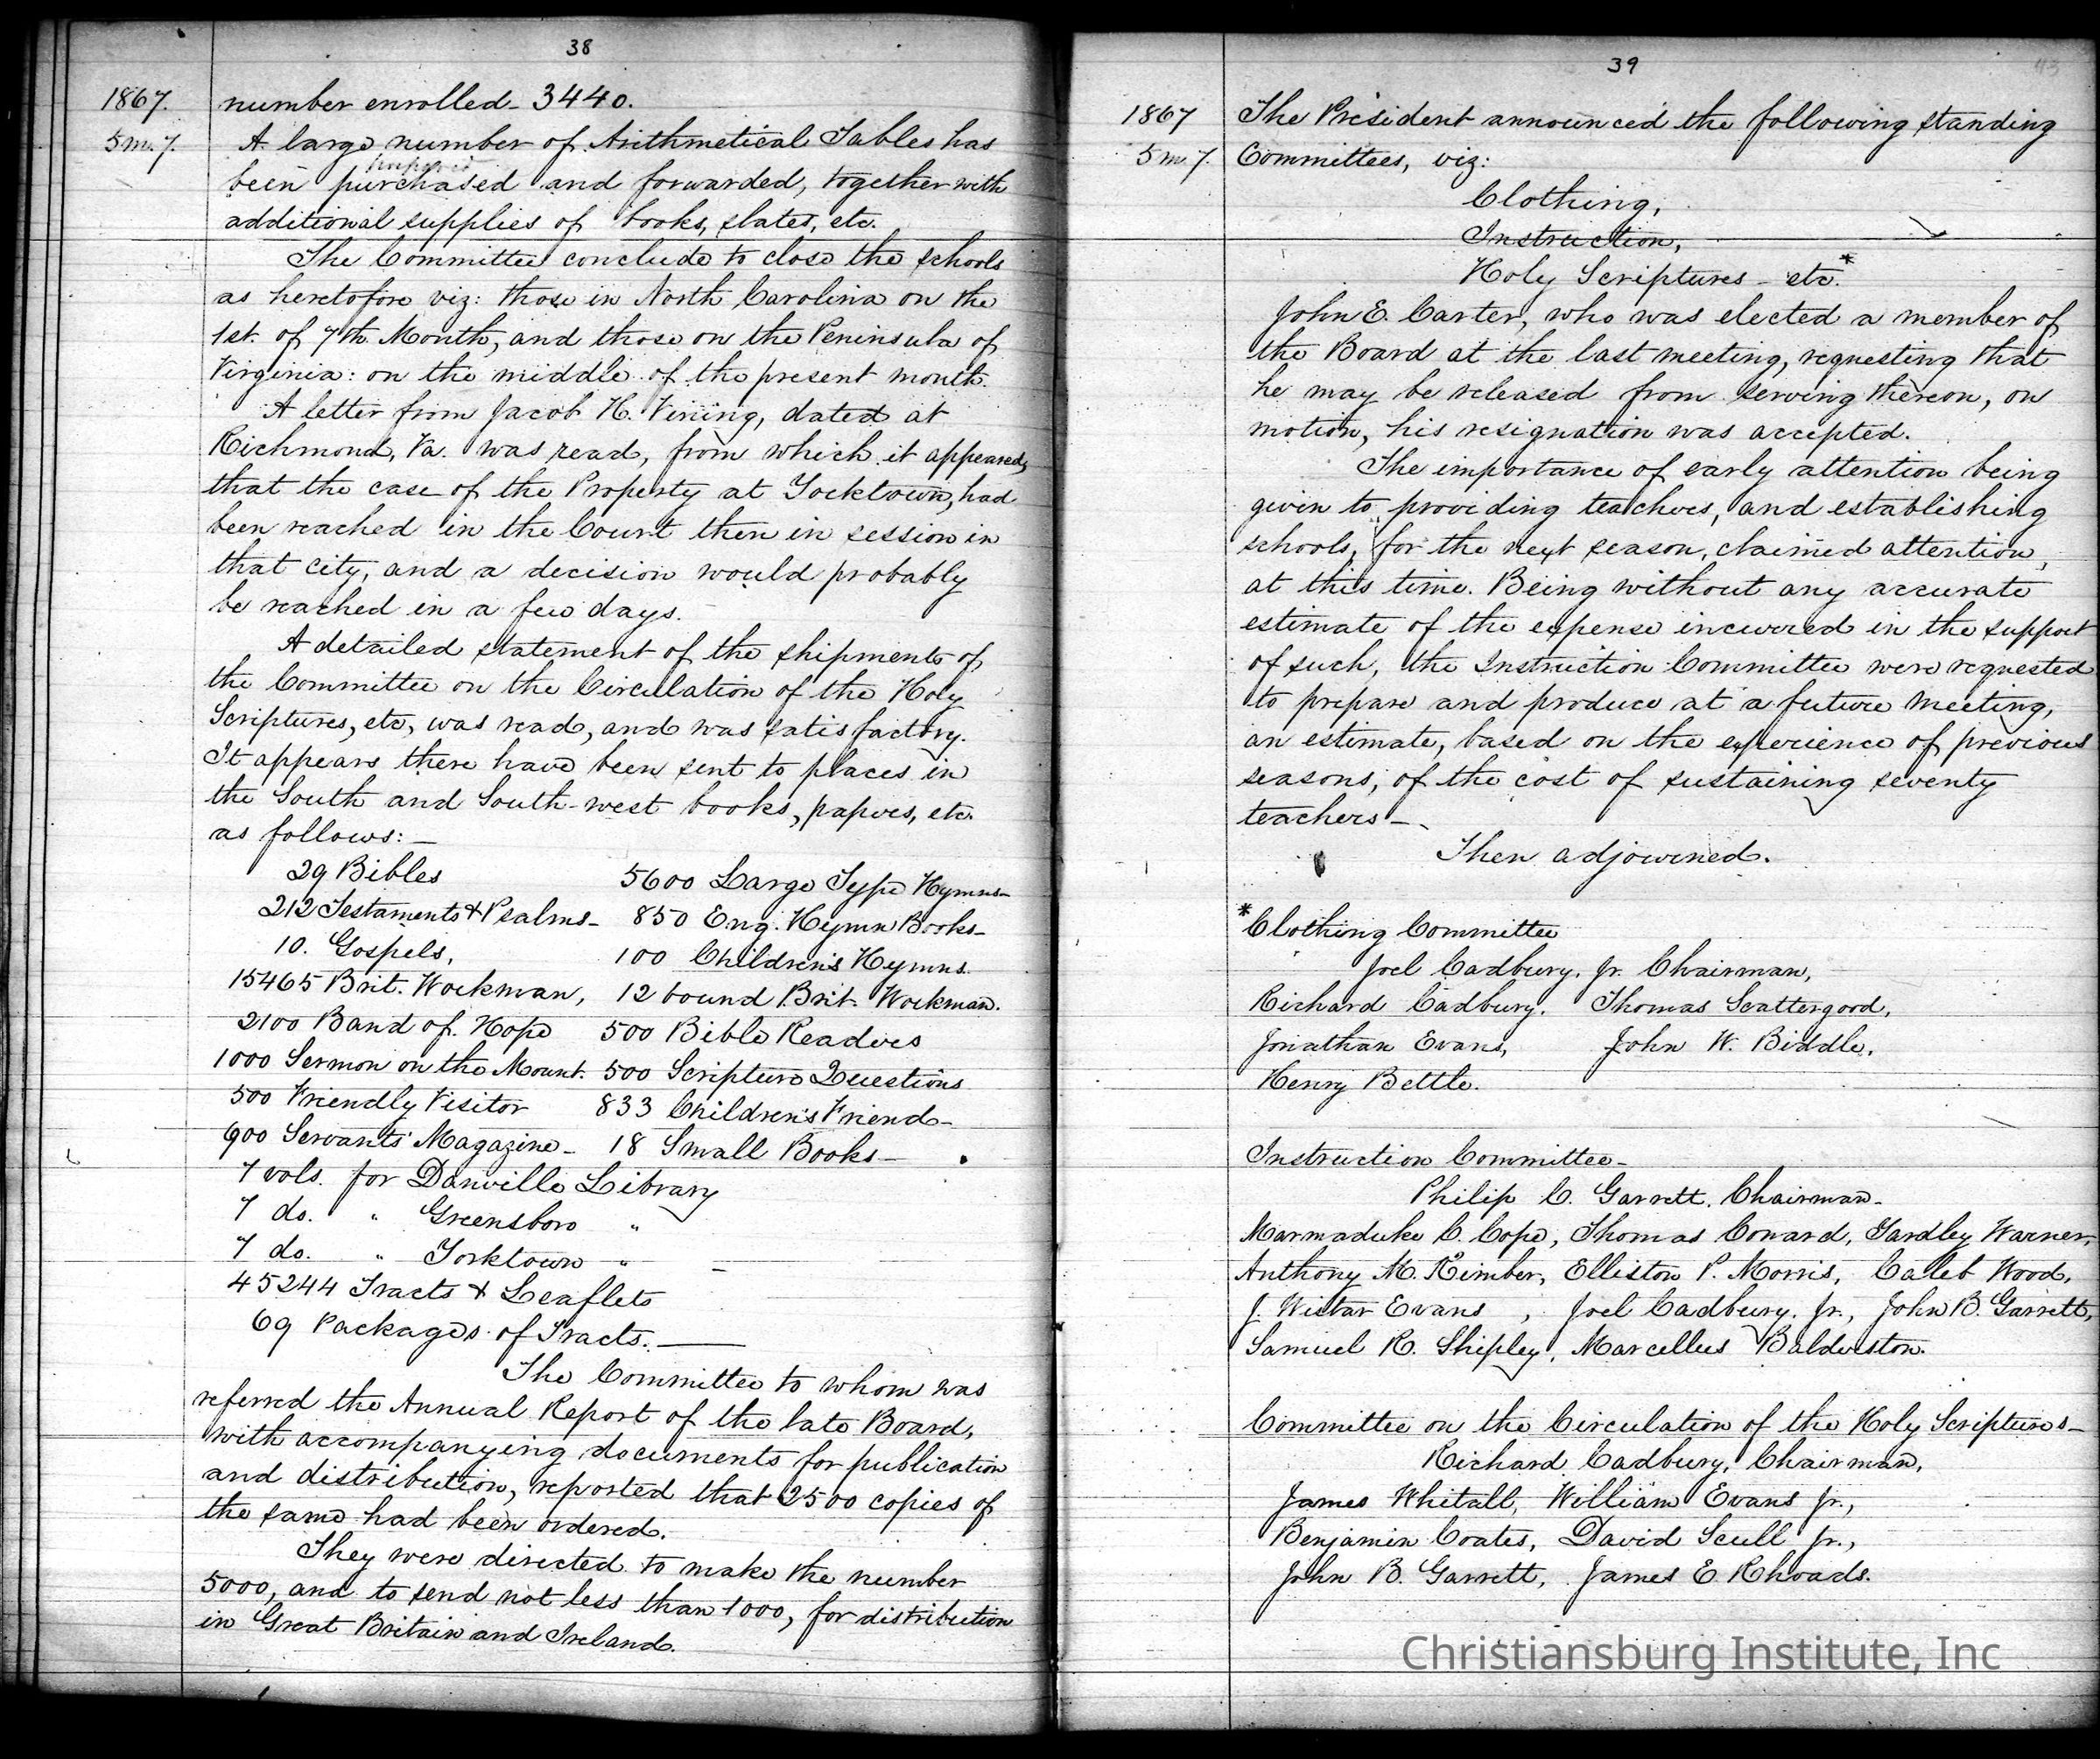 38
1867. number enrolled - 3440.
5 m. 7. A large number of Arithmetical Tables has
prepared
been purchased and forwarded, together with
additional supplies of books, slates, etc.
The Committee conclude to close the schools
as heretofore viz: those in North Carolina on the
1st. of 7th Month, and those on the Peninsula of
Virginia: on the middle of the present month.
A letter from Jacob H. Vining, dated at
Richmond, Va. was read, from which it appeared,
that the case of the Property at Yorktown, had
been reached in the Court then in session in
that city, and a decision would probably
be reached in a few days.
A detailed statement of the shipments of
the Committee on the Circulation of the Holy
Scriptures, etc, was read, and was satisfactory.
It appears there have been sent to places in
the South and South-west books, papers, etc.
as follows: —
29 Bibles 5600 Large Type Hymns -
212 Testaments & Psalms - 850 Eng. Hymn Books -
10. Gospels, 100 Children's Hymns.
15465 Brit. Workman, 12 bound Brit. Workman.
2100 Band of Hope 500 Bible Readers
1000 Sermon on the Mount. 500 Scripture Questions
500 Friendly Visitor 833 Children's Friend -
600 Servants' Magazine - 18 Small Books -
7 vols. for Danville Library
7 do. " Greensboro "
7 do. " Yorktown "
45244 Tracts & Leaflets
69 Packages of Tracts. —
The Committee to whom was
referred the Annual Report of the late Board,
with accompanying documents for publication
and distribution, reported that 2500 copies of
the same had been ordered.
They were directed to make the number
5000, and to send not less than 1000, for distribution
in Great Britain and Ireland.
39
43
1867 The President announced the following standing
5 m. 7. Committees, viz:
Clothing,
Instruction,
Holy Scriptures - etc.*
John E. Carter, who was elected a member of
the Board at the last meeting, requesting that
he may be released from serving thereon, on
motion, his resignation was accepted.
The importance of early attention being
given to providing teachers, and establishing
schools, for the next season, claimed attention,
at this time. Being without any accurate
estimate of the expense incurred in the support
of such, the Instruction Committee were requested
to prepare and produce at a future meeting,
an estimate, based on the experience of previous
seasons, of the cost of sustaining seventy
teachers -
Then adjourned.
*Clothing Committee
Joel Cadbury, Jr. Chairman,
Richard Cadbury. Thomas Scattergood,
Jonathan Evans, John W. Biddle,
Henry Bettle.
Instruction Committee -
Philip C. Garrett, Chairman -
Marmaduke C. Cope, Thomas Conard, Yardley Warner,
Anthony M. Kimber, Elliston P. Morris, Caleb Wood,
J. Wistar Evans, Joel Cadbury, Jr., John B. Garrett,
Samuel R. Shipley, Marcellus Balderston.
Committee on the Circulation of the Holy Scriptures -
Richard Cadbury, Chairman,
James Whitall, William Evans Jr.,
Benjamin Coates, David Scull Jr.,
John B. Garrett, James E. Rhoads.
Christiansburg Institute, Inc